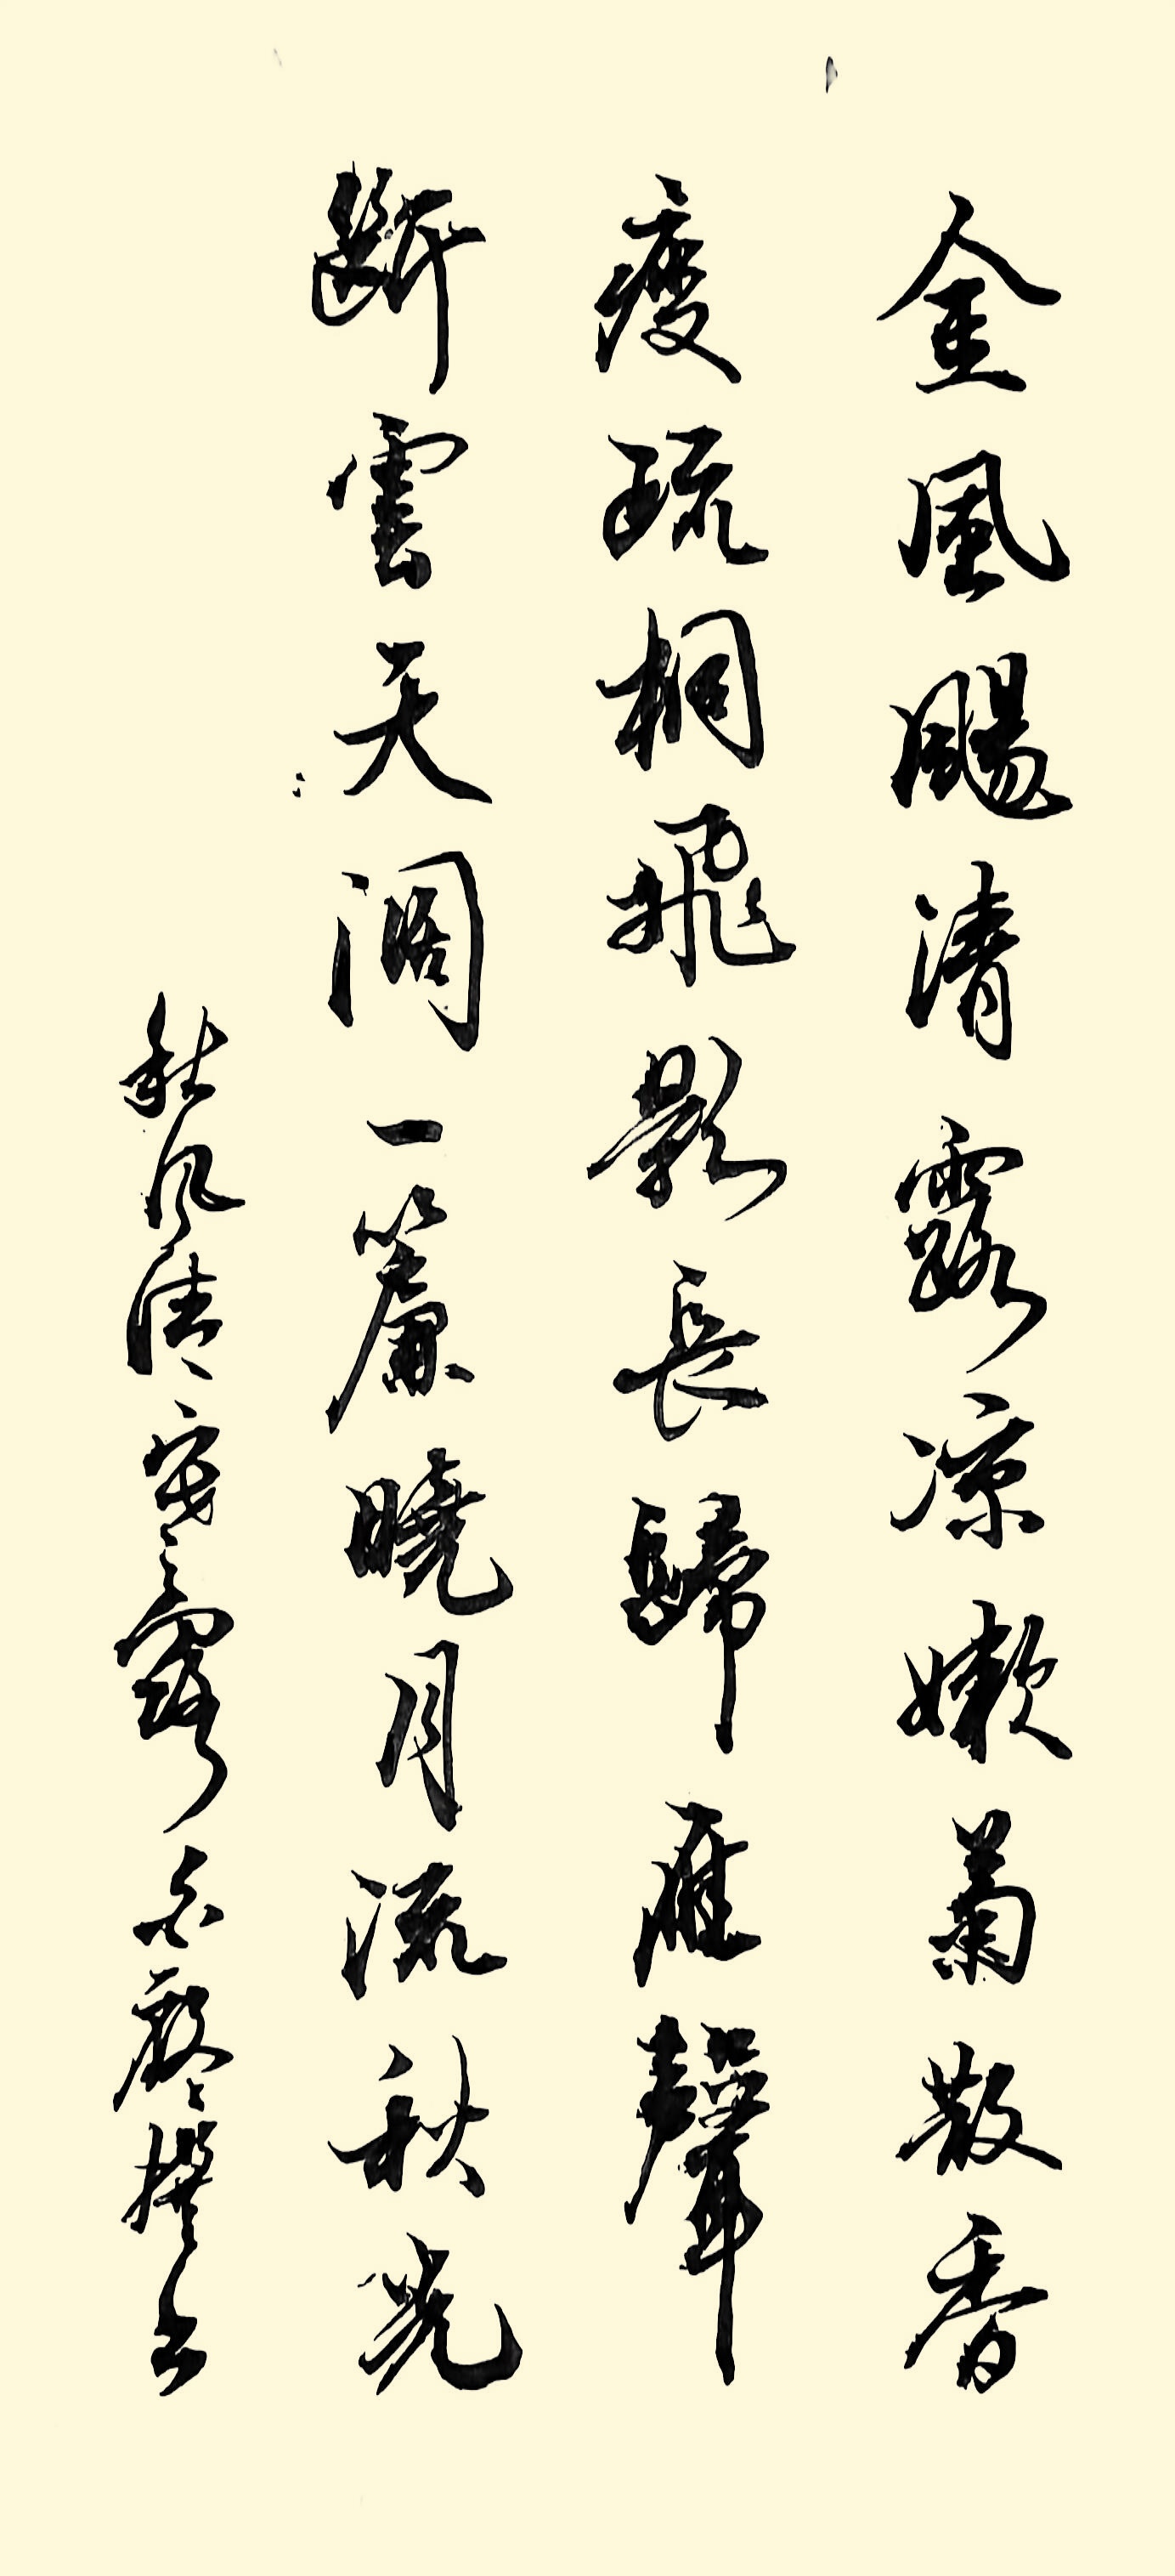 金風颺清露涼嫩菊散香
瘦疏桐飛影長歸雁聲
斷雲天闊一簾曉月流秋光
秋风清 寒露 撰书